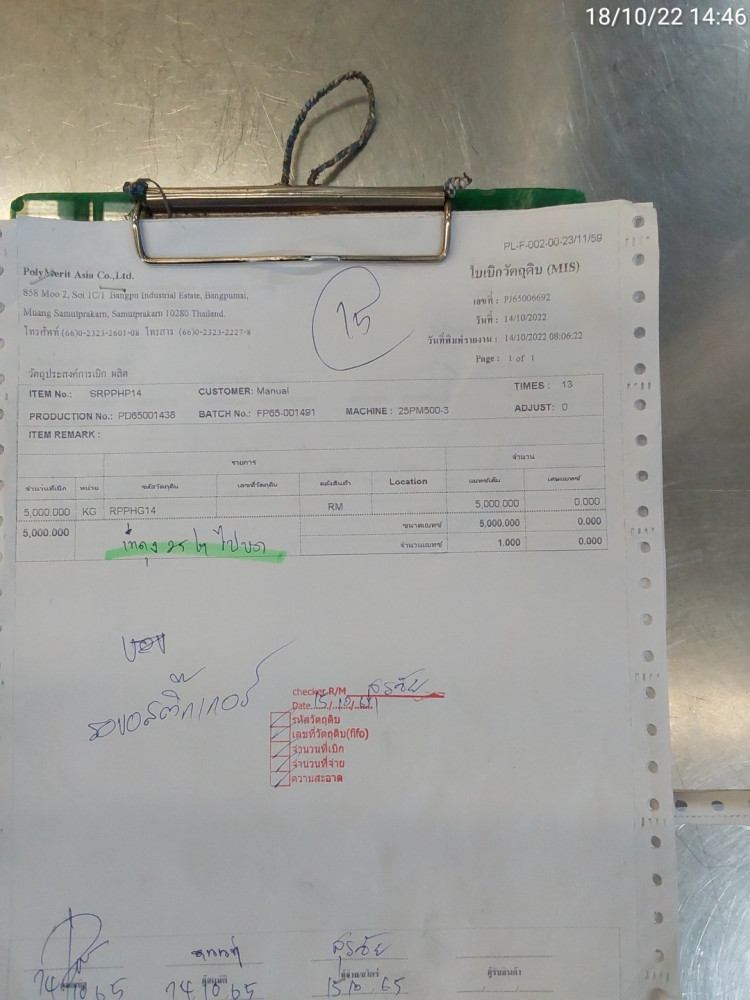 18/10/22 14:46
PL-F-002-00-23/11/59
PolyMerit Asia Co.,Ltd.
858 Moo 2, Soi 1C/1 Bangpu Industrial Estate, Bangpumai,
Muang Samutprakarn, Samutprakarn 10280 Thailand.
โทรศัพท์ (66)0-2323-2601-08 โทรสาร (66)0-2323-2227-8
ใบเบิกวัตถุดิบ (MIS)
เลขที่ : PJ65006692
วันที่ : 14/10/2022
วันที่พิมพ์รายงาน : 14/10/2022 08:06:22
Page : 1 of 1
15
วัตถุประสงค์การเบิก ผลิต
ITEM No.: SRPPHP14 CUSTOMER: Manual TIMES : 13
PRODUCTION No.: PD65001438 BATCH No.: FP65-001491 MACHINE : 25PM500-3 ADJUST: 0
ITEM REMARK :
รายการ จำนวน
จำนวนที่เบิก หน่วย รหัสวัตถุดิบ เลขที่วัตถุดิบ คลังสินค้า Location แบทช์เต็ม เศษแบทช์
5,000.000 KG RPPHG14 RM 5,000.000 0.000
5,000.000 ขนาดแบทช์ 5,000.000 0.000
จำนวนแบทช์ 1.000 0.000
รอขอสติ๊กเกอร์
checker R/M สุรชัย
Date 15/10/65
รหัสวัตถุดิบ
เลขที่วัตถุดิบ(fifo)
จำนวนที่เบิก
จำนวนที่จ่าย
ความสะอาด
สุรชัย
14 10 65 14 10 65 15 10 65
ผู้รับสินค้า